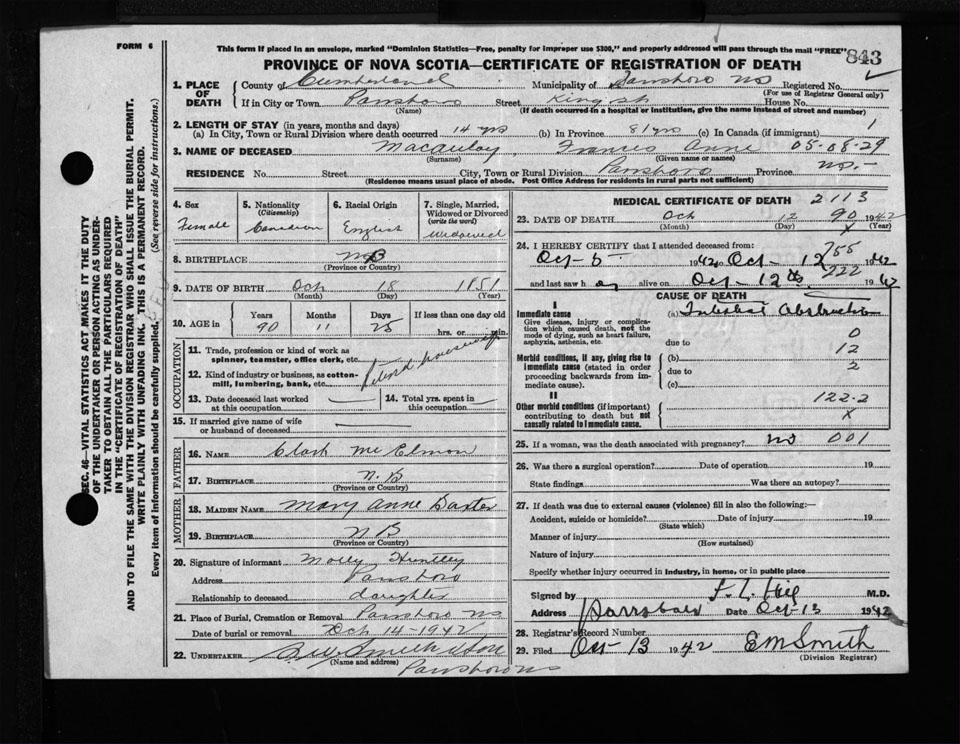 FORM 6
This form if placed in an envelope, marked "Dominion Statistics—Free, penalty for improper use $300," and properly addressed will pass through the mail "FREE"
843
PROVINCE OF NOVA SCOTIA—CERTIFICATE OF REGISTRATION OF DEATH
1. PLACE OF DEATH
County of Cumberland Municipality of Parrsboro NS Registered No.
(For use of Registrar General only)
If in City or Town Parrsboro Street King St House No.
(Name) (If death occurred in a hospital or institution, give the name instead of street and number)
2. LENGTH OF STAY (in years, months and days)
(a) In City, Town or Rural Division where death occurred 14 yrs (b) In Province 81 yrs (c) In Canada (if immigrant) 1
3. NAME OF DECEASED Macaulay, Frances Anne 05-08-29
(Surname) (Given name or names)
RESIDENCE No. Street City, Town or Rural Division Parrsboro Province NS.-
(Residence means usual place of abode. Post Office Address for residents in rural parts not sufficient)
SEC. 46—VITAL STATISTICS ACT MAKES IT THE DUTY
OF THE UNDERTAKER OR PERSON ACTING AS UNDER-
TAKER TO OBTAIN ALL THE PARTICULARS REQUIRED
IN THE "CERTIFICATE OF REGISTRATION OF DEATH"
AND TO FILE THE SAME WITH THE DIVISION REGISTRAR WHO SHALL ISSUE THE BURIAL PERMIT.
WRITE PLAINLY WITH UNFADING INK. THIS IS A PERMANENT RECORD.
Every item of Information should be carefully supplied. (See reverse side for instructions).
4. Sex
Female
5. Nationality
(Citizenship)
Canadian
6. Racial Origin
English
7. Single, Married,
Widowed or Divorced
(write the word)
Widowed
8. BIRTHPLACE NB
(Province or Country)
9. DATE OF BIRTH Oct 18 1851
(Month) (Day) (Year)
10. AGE in
Years Months Days If less than one day old
90 11 25 hrs. or min.
OCCUPATION
11. Trade, profession or kind of work as
spinner, teamster, office clerk, etc.
12. Kind of industry or business, as cotton-
mill, lumbering, bank, etc.
Retired housewife
13. Date deceased last worked
at this occupation
14. Total yrs. spent in
this occupation
15. If married give name of wife
or husband of deceased
FATHER
16. NAME Clark McElmon
17. BIRTHPLACE N.B
(Province or Country)
MOTHER
18. MAIDEN NAME Mary Anne Baxter
19. BIRTHPLACE NB
(Province or Country)
20. Signature of informant Molly Huntley
Address Parrsboro
Relationship to deceased daughter
21. Place of Burial, Cremation or Removal Parrsboro NS
Date of burial or removal Oct 14-1942
22. UNDERTAKER Smith & Son
(Name and address) Parrsboro NS
MEDICAL CERTIFICATE OF DEATH 2113
23. DATE OF DEATH Oct 12 90 1942
(Month) (Day) X (Year)
24. I HEREBY CERTIFY that I attended deceased from:
755
Oct-5 1942 to Oct-12 1942
222
and last saw h er alive on Oct-12th 1942
CAUSE OF DEATH
I
Immediate cause
Give disease, injury or complica-
tion which caused death, not the
mode of dying, such as heart failure,
asphyxia, asthenia, etc.
(a) Intestinal Obstruction
due to 0
Morbid conditions, if any, giving rise to
immediate cause (stated in order
proceeding backwards from im-
mediate cause).
(b) 12
due to 2
(c)
II
Other morbid conditions (if important)
contributing to death but not
causally related to immediate cause.
122.2
X
25. If a woman, was the death associated with pregnancy? no 001
26. Was there a surgical operation? Date of operation 19
State findings Was there an autopsy?
27. If death was due to external causes (violence) fill in also the following:—
Accident, suicide or homicide? Date of injury 19
(State which)
Manner of injury
(How sustained)
Nature of injury
Specify whether injury occurred in industry, in home, or in public place
Signed by M.D.
Address Parrsboro Date Oct-13 1942
28. Registrar's Record Number
29. Filed Oct-13 1942 EM Smith
(Division Registrar)